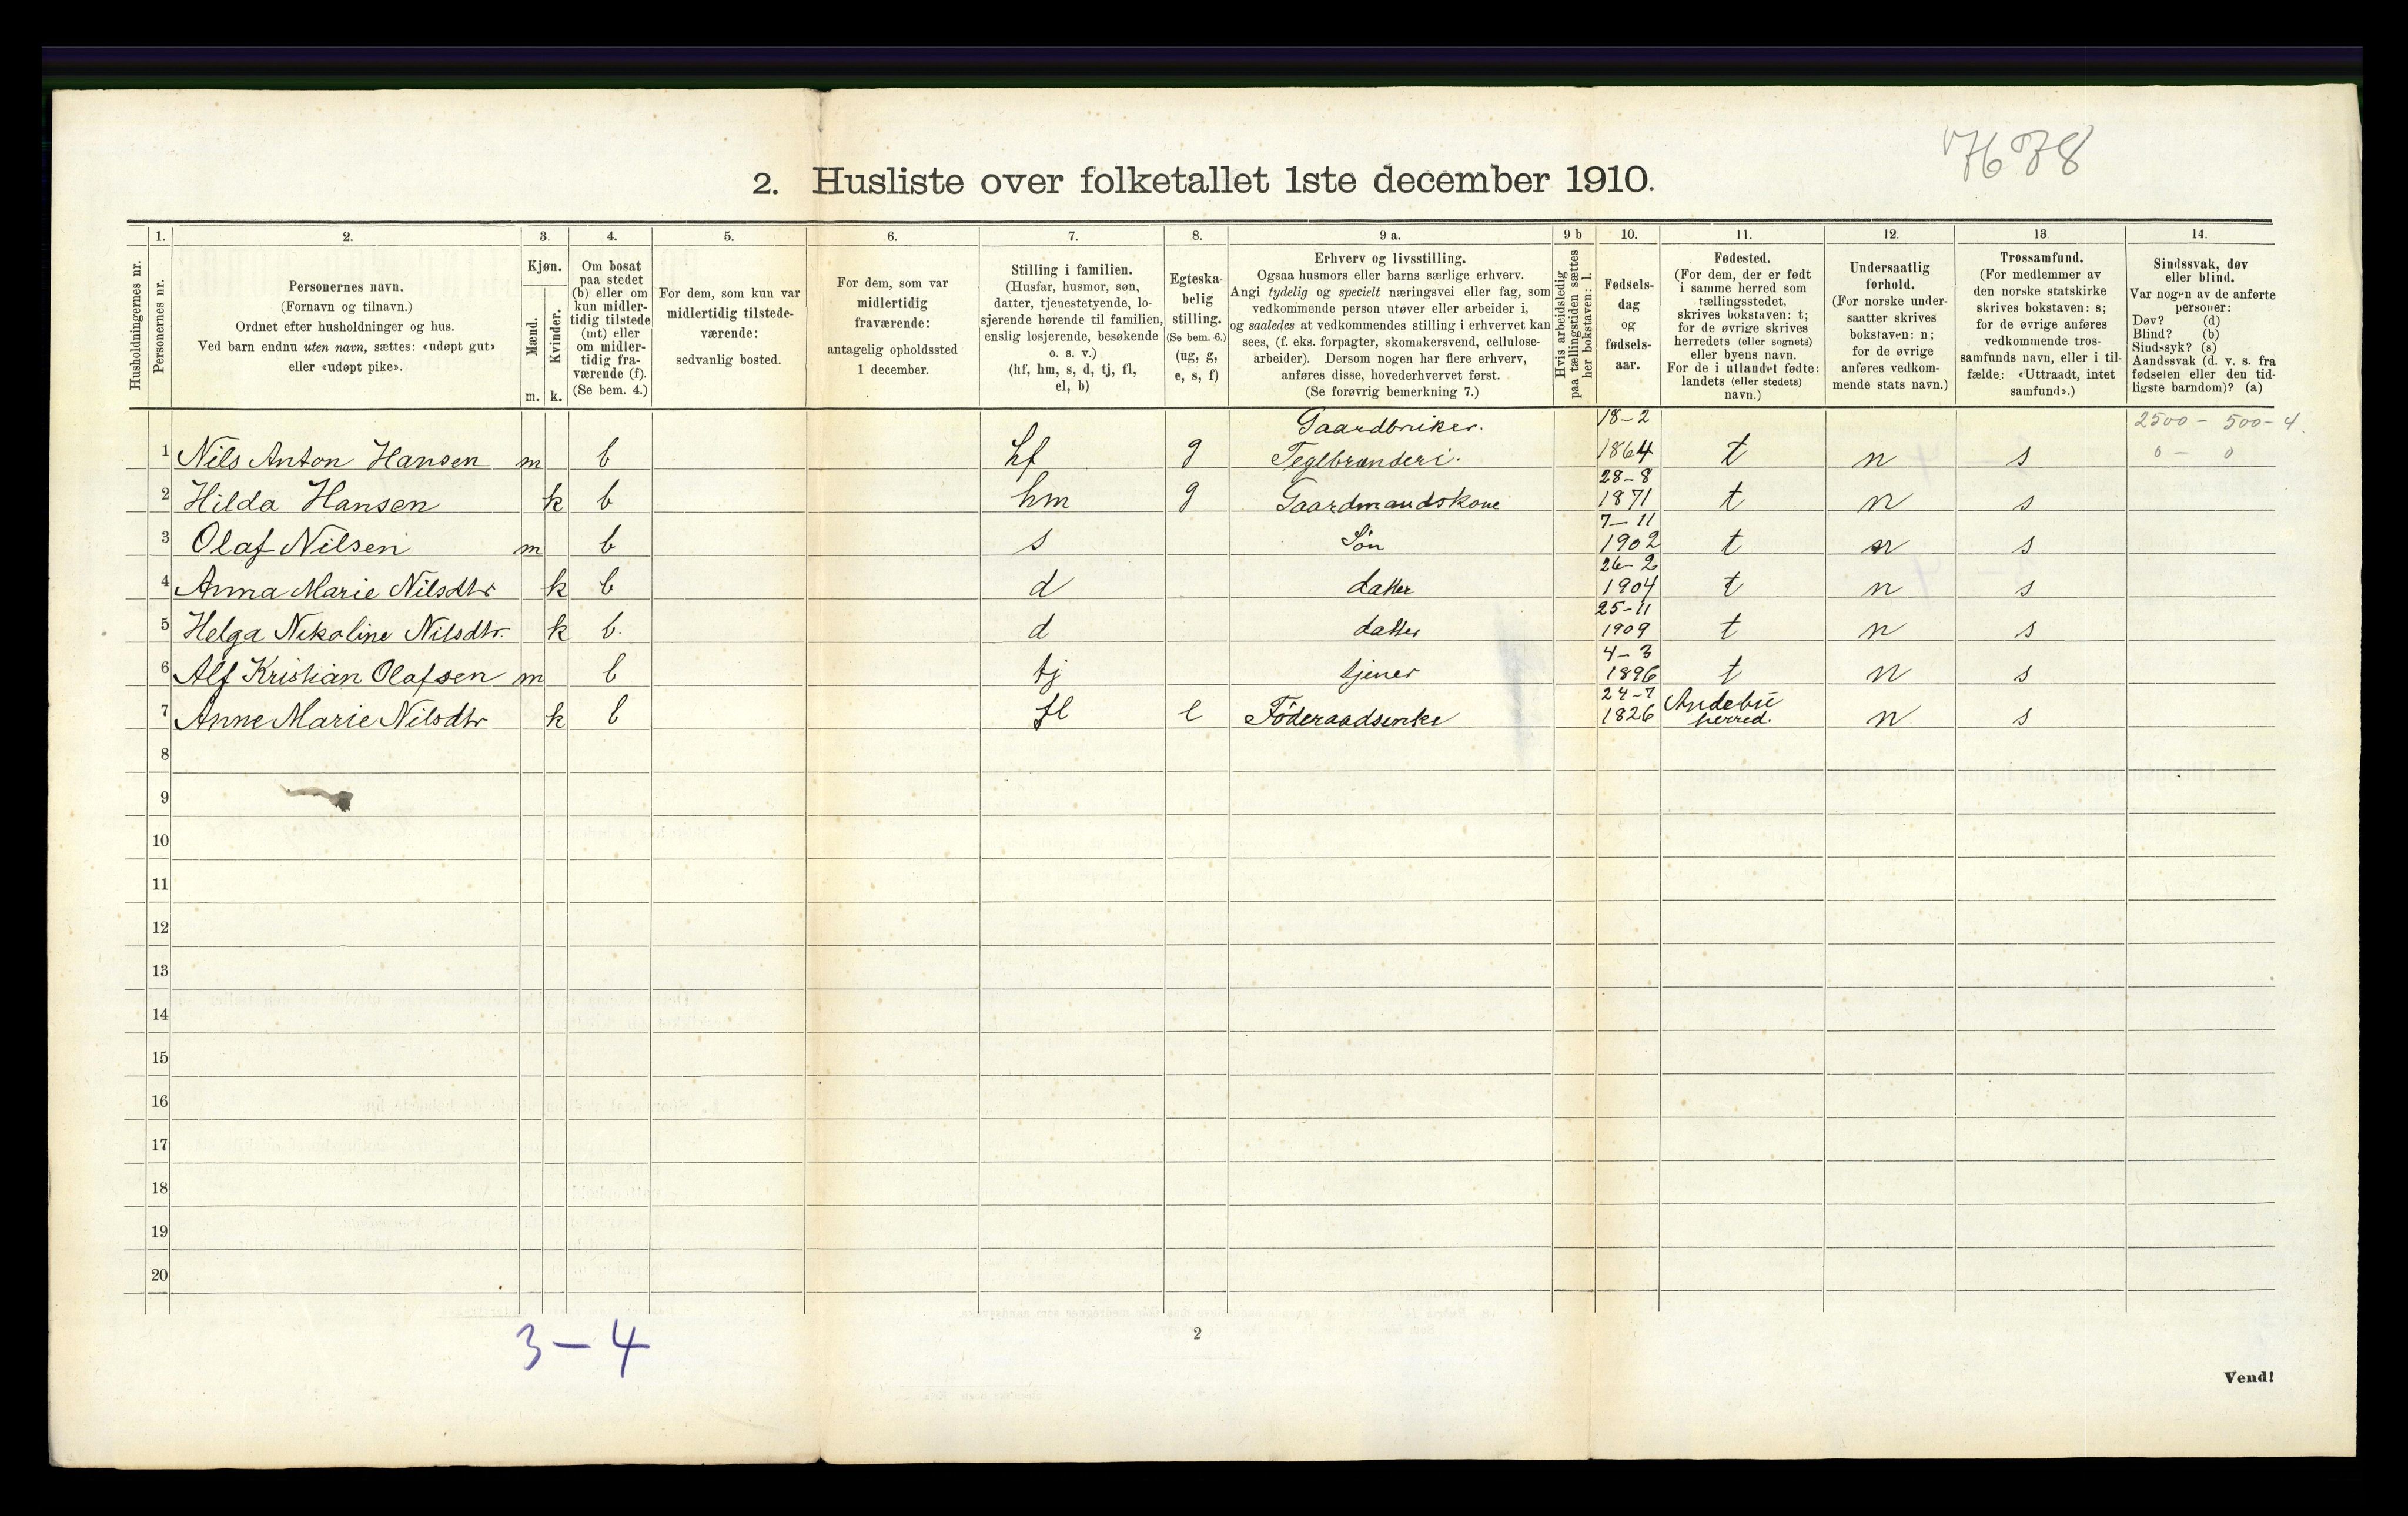 7678
2. Husliste over folketallet 1ste december 1910.
Husholdningernes nr.
1.
Personernes nr.
2.
Personernes navn.
(Fornavn og tilnavn.)
Ordnet efter husholdninger og hus.
Ved barn endnu uten navn, sættes: «udøpt gut»
eller «udøpt pike».
3.
Kjøn.
Mænd.
Kvinder.
m. k.
4.
Om bosat
paa stedet
(b) eller om
kun midler-
tidig tilstede
(mt) eller
om midler-
tidig fra-
værende (f).
(Se bem. 4.)
5.
For dem, som kun var
midlertidig tilstede-
værende:
sedvanlig bosted.
6.
For dem, som var
midlertidig
fraværende:
antagelig opholdssted
1 december.
7.
Stilling i familien.
(Husfar, husmor, søn,
datter, tjenestetyende, lo-
sjerende hørende til familien,
enslig losjerende, besøkende
o. s. v.)
(hf, hm, s, d, tj, fl,
el, b)
8.
Egteska-
belig
stilling.
(Se bem. 6.)
(ug, g,
e, s, f)
9 a.
Erhverv og livsstilling.
Ogsaa husmors eller barns særlige erhverv.
Angi tydelig og specielt næringsvei eller fag, som
vedkommende person utøver eller arbeider i,
og saaledes at vedkommendes stilling i erhvervet kan
sees, (f. eks. forpagter, skomakersvend, cellulose-
arbeider). Dersom nogen har flere erhverv,
anføres disse, hovederhvervet først.
(Se forøvrig bemerkning 7.)
9 b
Hvis arbeidsledig
paa tællingstiden sættes
her bokstaven: l.
10.
Fødsels-
dag
og
fødsels-
aar.
11.
Fødested.
(For dem, der er født
i samme herred som
tællingsstedet,
skrives bokstaven: t;
for de øvrige skrives
herredets (eller sognets)
eller byens navn.
For de i utlandet fødte:
landets (eller stedets)
navn.)
12.
Undersaatlig
forhold.
(For norske under-
saatter skrives
bokstaven: n;
for de øvrige
anføres vedkom-
mende stats navn.)
13
Trossamfund.
(For medlemmer av
den norske statskirke
skrives bokstaven: s;
for de øvrige anføres
vedkommende tros-
samfunds navn, eller i til-
fælde: «Uttraadt, intet
samfund».)
14.
Sindssvak, døv
eller blind.
Var nogen av de anførte
personer:
Døv? (d)
Blind? (b)
Sindssyk? (s)
Aandssvak (d. v. s. fra
fødselen eller den tid-
ligste barndom)? (a)
Gaardbruker. 18-2 2500 - 500 - 4.
1 Nils Anton Hansen m b hf g Teglbrænderi. 1864 t n s 0 - 0
28-8
2 Hilda Hansen k b hm g Gaardmandskone 1871 t n s
7-11
3 Olaf Nilsen m b s Søn 1902 t n s
26-2
4 Anna Marie Nilsdtr k b d datter 1904 t n s
25-11
5 Helga Nikoline Nilsdtr. k b. d datter 1909 t n s
4-3
6 Alf Kristian Olafsen m b tj tjener 1896 t n s
24-7 Andebu
7 Anne Marie Nilsdtr k b fl e Föderaadsenke 1826 herred. n s
8
9
10
11
12
13
14
15
16
17
18
19
20
3-4
2
Vend!